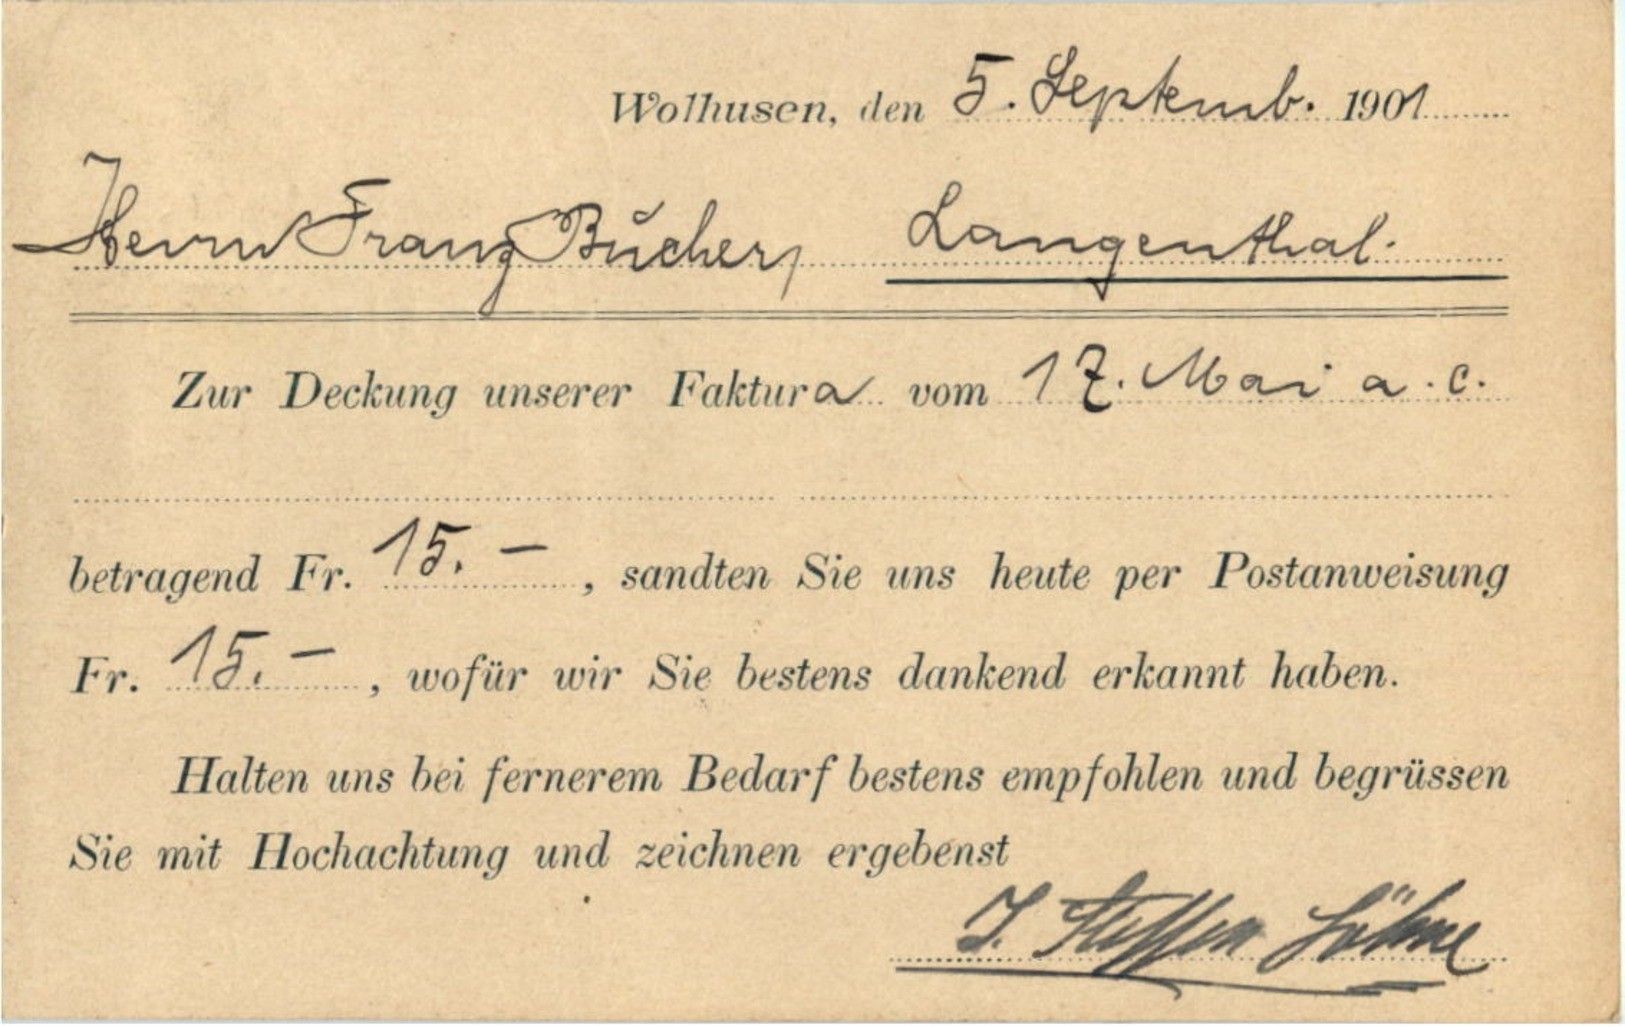 Wolhusen, den 5. Septemb. 1901
Herrn Franz Bŭcher, Langenthal.
Zur Deckung unserer Faktura vom 17. Mai a. c.
betragend Fr. 15. –, sandten Sie uns heute per Postanweisung
Fr. 15. –, wofür wir Sie bestens dankend erkannt haben.
Halten uns bei fernerem Bedarf bestens empfohlen und begrüssen
Sie mit Hochachtung und zeichnen ergebenst
J. Steffen Söhne